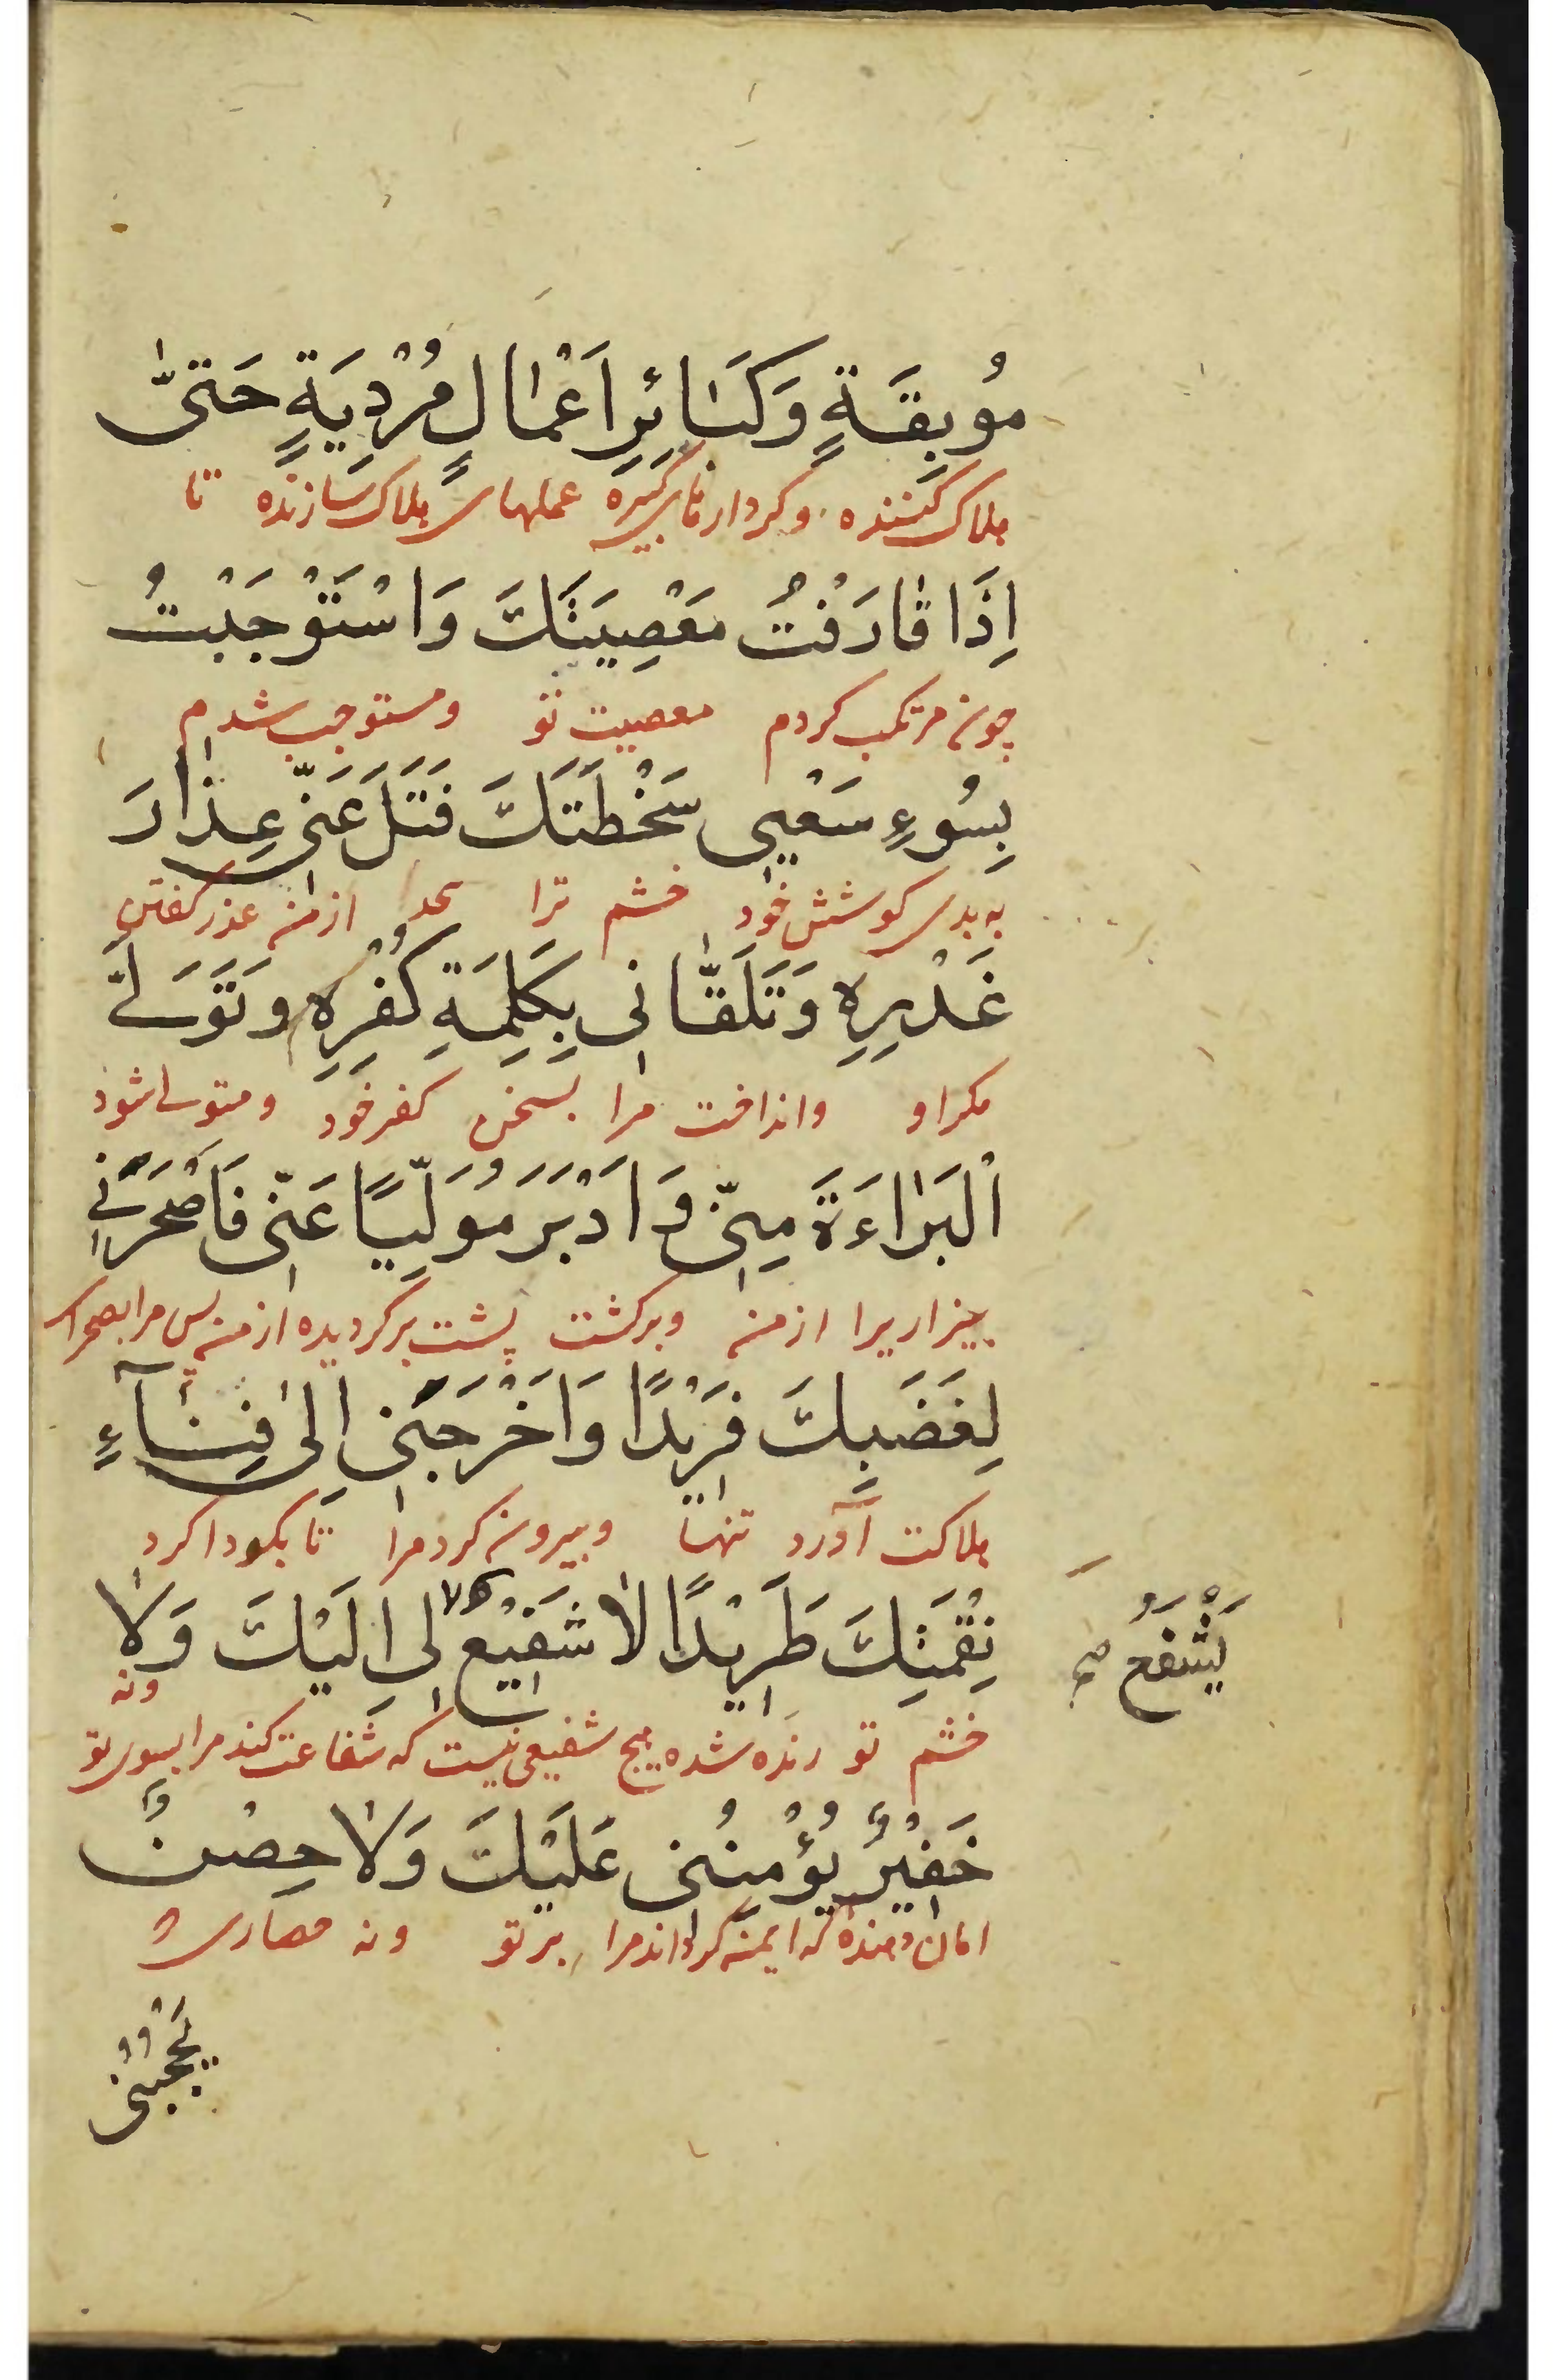 مُوبِقَةٍ وَكَبَائِرِ اَعْمَالٍ مُرْدِيَةٍ حَتّىٰ
هلاک کننده و کردارهای کبیره عملهای هلاک سازنده تا
اِذَا قَارَفْتُ مَعْصِيَتَكَ وَاسْتَوْجَبْتُ
چون مرتکب کردم معصیت تو و مستوجب شدم
بِسُوءِ سَعْيِی سَخْطَتَكَ فَتَلَ عَنّی عِذَارَ
به بدی کوشش خود خشم ترا از من عذر گفتن
غَدْرِهِ وَتَلَقَّانی بِكَلِمَةِ كُفْرِهِ وَتَوَلَّی
مکر او و انداخت مرا بسخن کفر خود و متولی شود
الْبَرَاءَةَ مِنّی وَاَدْبَرَ مُوَلِّيًا عَنّی فَاَصْحَرَنی
بیزاریرا از من و برگشت پشت برگردیده از من پس مرا بصحرای
لِغَضَبِكَ فَرِيْدًا وَاَخْرَجَنی اِلیٰ فِنَآءِ
هلاکت آورد تنها و بیرون کرد مرا تا بکوداکرد
نِقْمَتِكَ طَرِيْدًا لَا شَفِيْعَ لی اِلَيْكَ وَلَا
يَشْفَعُ صح
ونه
خشم تو رنده شده هیچ شفیعی نیست که شفاعت کند مرا بسوی تو
خَفِيْرٌ يُؤْمِنُنی عَلَيْكَ وَلَا حِصْنٌ
امان دهنده که ایمن گرداند مرا بر تو ونه حصاری
يَحْجُبُنی